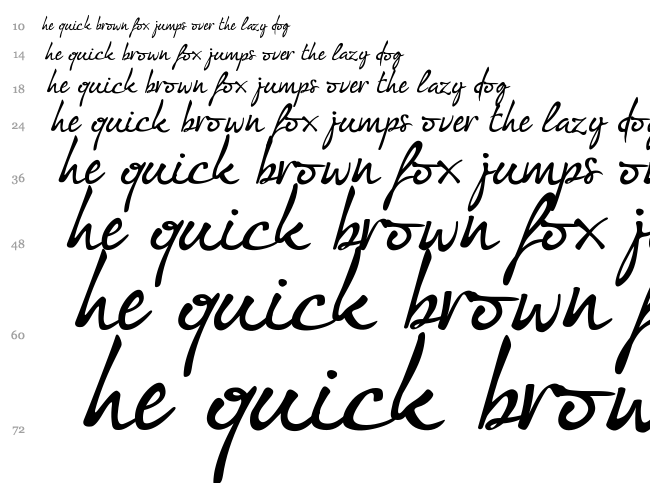 10 he quick brown fox jumps over the lazy dog
14 he quick brown fox jumps over the lazy dog
18 he quick brown fox jumps over the lazy dog
24 he quick brown fox jumps over the lazy do
36 he quick brown fox jumps o
48 he quick brown fox j
60 he quick brown f
72 he quick brow